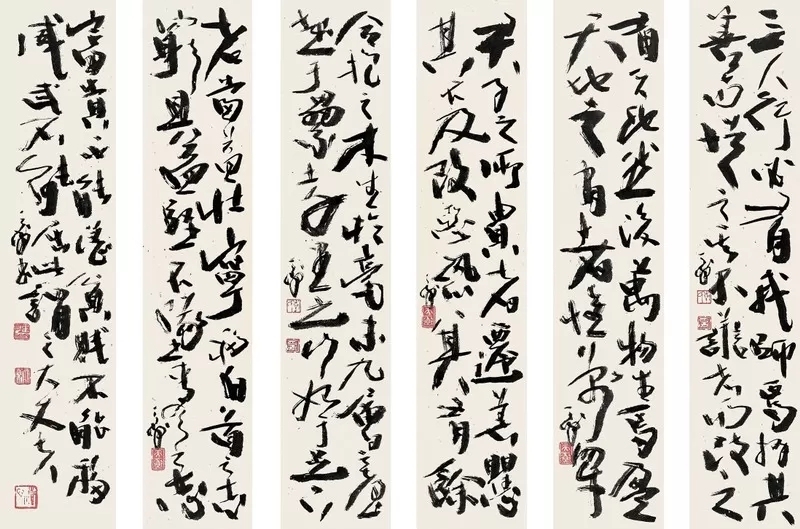 三人行必有我師焉擇其
善者而從之其不善者而改之
有天地然後萬物生焉盈
天地之間者惟萬
君子之所貴者遷善懼
其不及改惡恐其有餘
合抱之木生於毫末九層之臺
起于累土千里之行始于足下
老當益壯寧移白首之
窮且益堅不墜青雲之志
富貴不能淫貧賤不能移
威武不能屈此謂之大丈夫